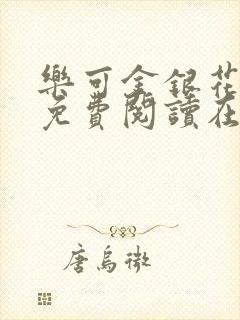 樂可金銀花
免費閱讀在
唐烏微